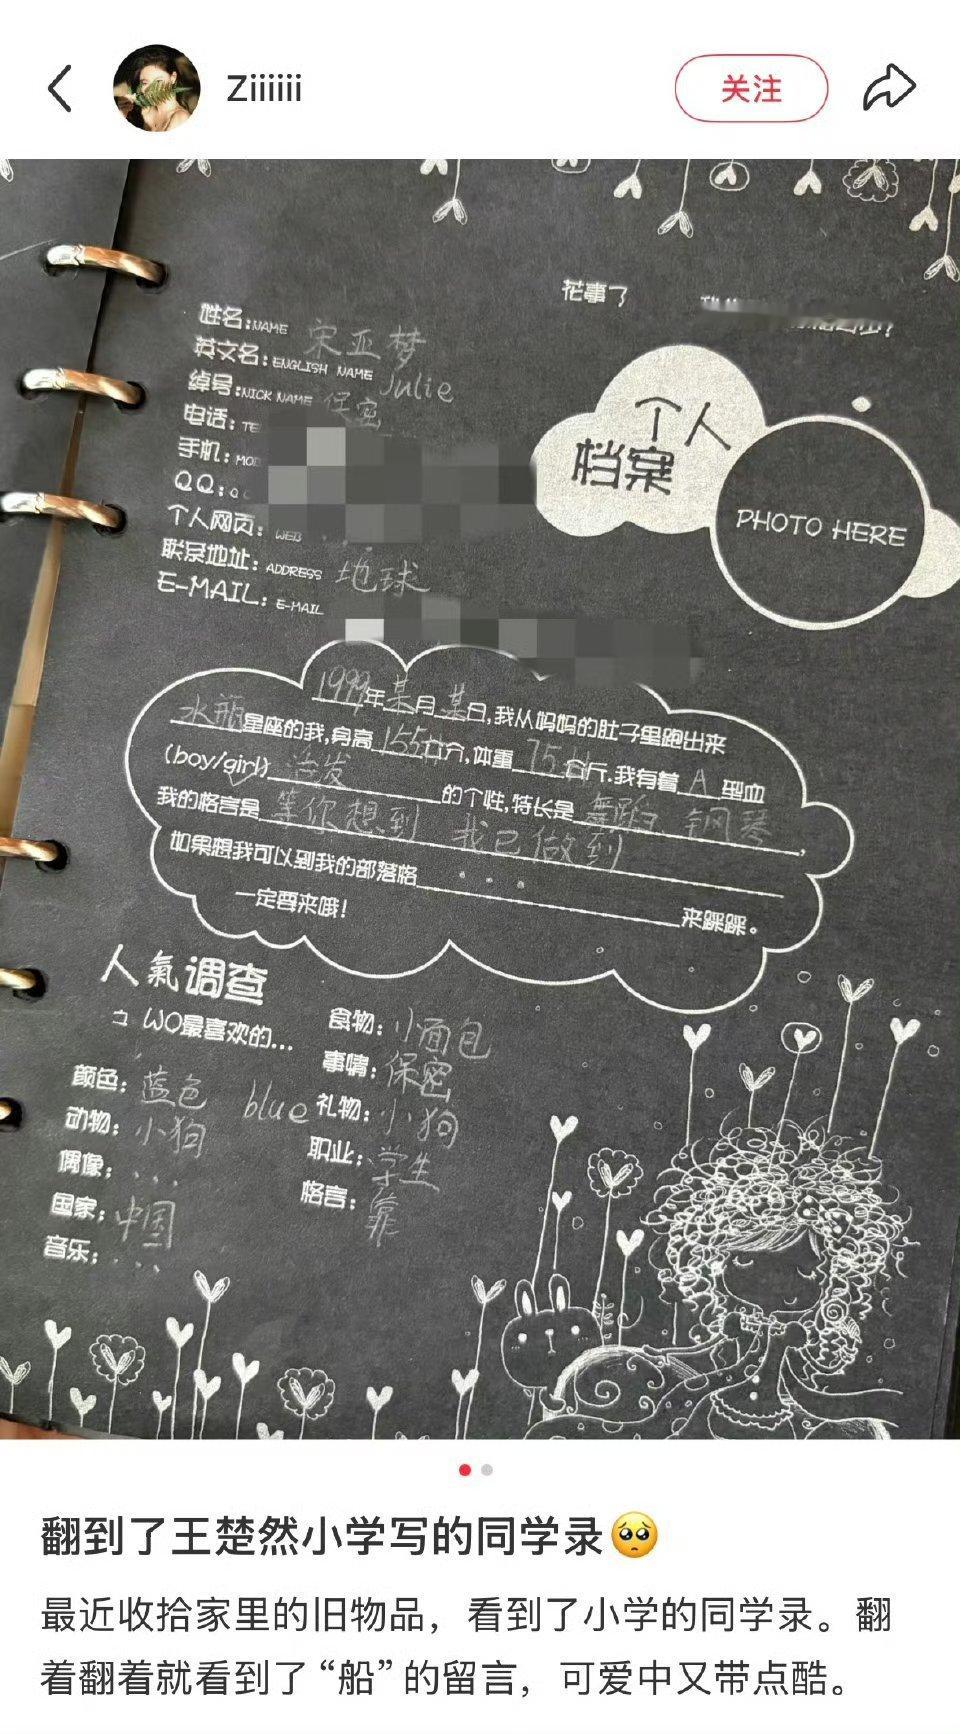 Ziiiiii
关注
花事了
姓名:NAME 宋亚梦
英文名:ENGLISH NAME Julie
绰号:NICK NAME 保密
电话:
手机:
QQ:
个人网页: WEB
联系地址: ADDRESS 地球
E-MAIL: E-MAIL
个人
档案
PHOTO HERE
1999年某月某日,我从妈妈的肚子里跑出来
水瓶星座的我,身高155公分,体重75公斤.我有着A型血
(boy/girl)活发的个性,特长是舞蹈、钢琴,
我的格言是等你想到 我已做到
如果想我可以到我的部落格...来踩踩。
一定要来哦!
人氣调查
WO最喜欢的...
颜色: 蓝色 blue
动物: 小狗
偶像: ...
国家: 中国
音乐: ...
食物: 小面包
事情: 保密
礼物: 小狗
职业: 学生
格言: 靠
翻到了王楚然小学写的同学录🥺
最近收拾家里的旧物品，看到了小学的同学录。翻
着翻着就看到了“船”的留言，可爱中又带点酷。